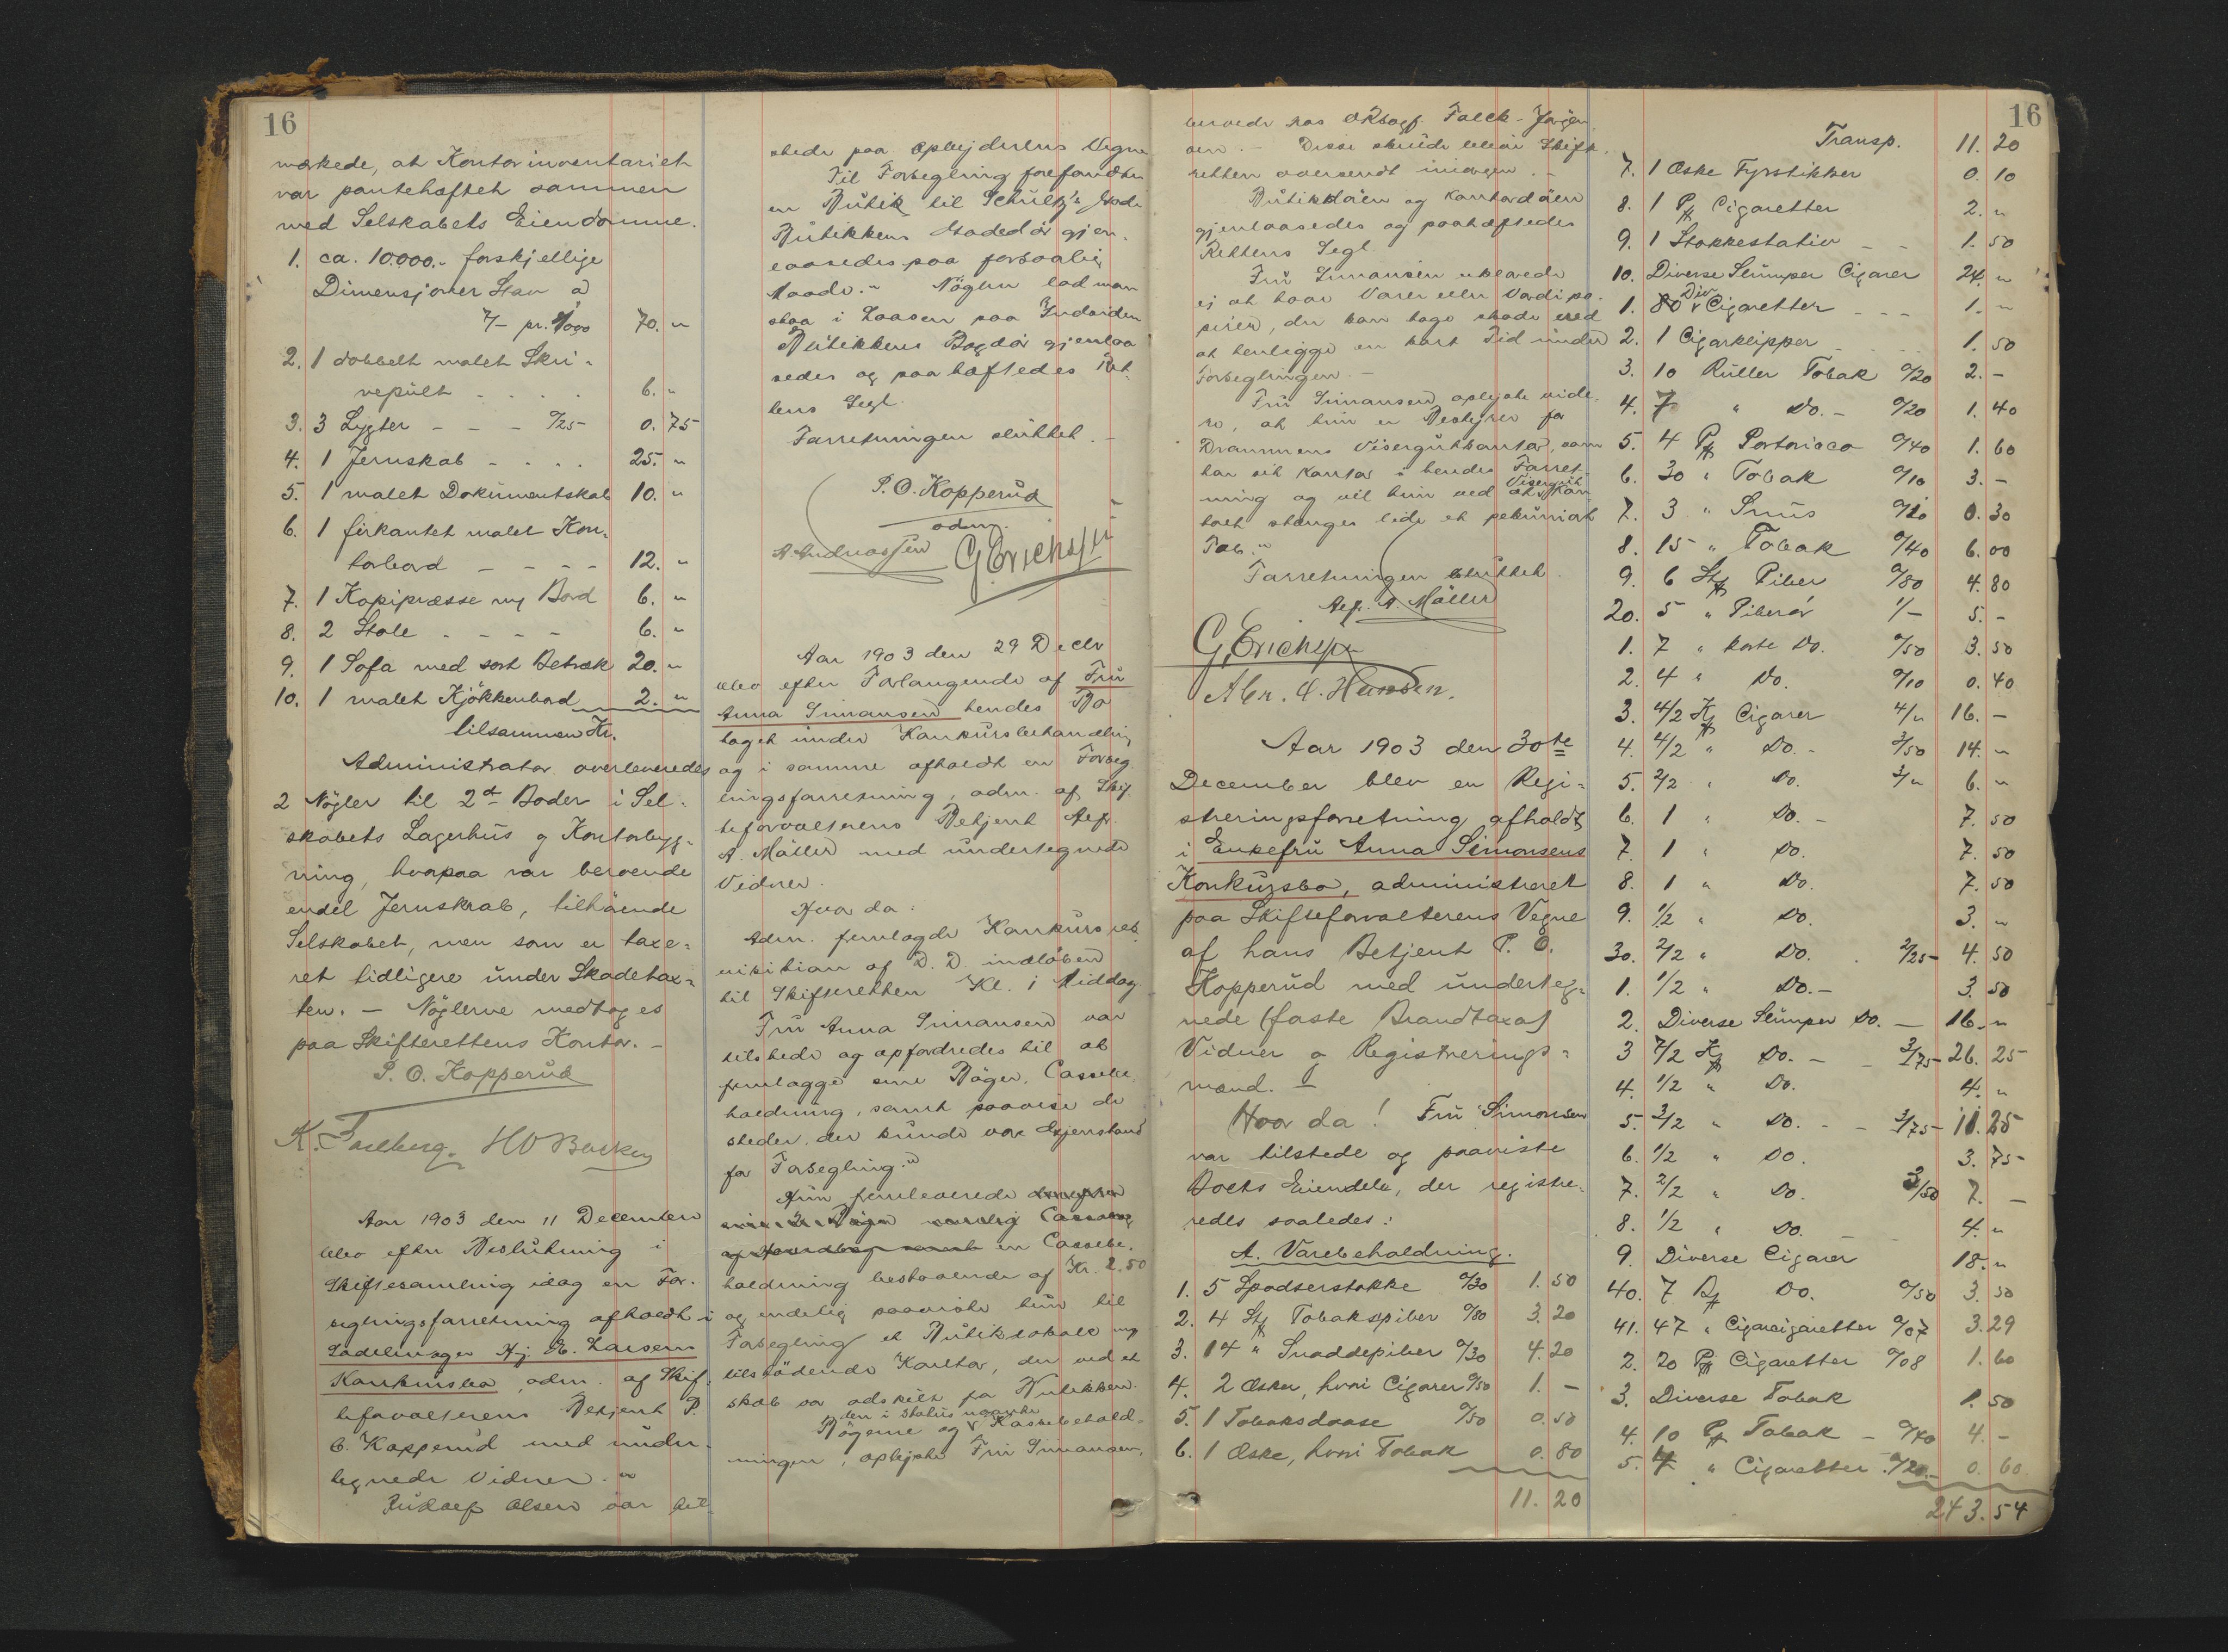 16
mærkede, at Kontorinventariet
var pantehæftet sammen
med Selskabets Eiendomme.
1. ca. 10000.- forskjellige
Dimensjoner Stav a
7/- pr. %1000 70. "
2. 1 dobbelt malet Skri=
vepült - - - - 6. "
3. 3 Lygter - - - %25 0. 75
4. 1 Jernskab - - - - 25. "
5. 1 malet Dokümentskab 10. "
6. 1 firkantet malet Kon=
torbord - - - - 12. "
7. 1 Kopipræsse og Bord 6. "
8. 2 Stole - - - - 6. "
9. 1 Sofa med sort Betræk 20. "
10. 1 malet Kjökkenbord 2. "
tilsammen Kr.
Administrator overleveredes
2 Nögler til 2de Boder i Sel=
skabets Lagerhüs og Kontorbyg=
ning, hvorpaa var beroende
endel Jernskrab, tilhörende
Selskabet, men som er taxe=
ret tidligere ünder Skadetax=
ten. - Nöglerne medtoges
paa Skifterettens Kontor. -
P. O. Kopperüd
HO Backen
Aar 1903 den 11 December
blev efter Beslütning i
Skiftesamling idag en For=
seglingsforretning afholdt i
Sadelmager Hj. E. Larsens
Konkürsbo, adm. af Skif=
teforvalterens Betjent P.
O. Kopperüd med ünder=
tegnede Vidner. "
Olsen var til=
stede paa oplejderens Vegne
Til Forsegling forefandtes
en Bütik til Schultz's Gade
Bütikkens Gadedör gjen=
laasedes paa forsvarlig
Maade. " Nöglen lod man
staa i Laasen paa Indsiden
Bütikkens Bagdör gjenlaa
sedes og paahæftedes Ret=
tens Segl.
Forretningen slüttet. -
P. O. Kopperüd
adm.
A Andreassen G. Erichsen
Aar 1903 den 29 Decbr
blev efter Forlangende af Frü
Anna Simonsen hendes Bo
taget ünder Konkürsbehandling
og i samme afholdt en Forseg
lingsforretning, adm. af Skif
teforvalterens Betjent Alf.
A. Möller med ündertegnede
Vidner.
Hvor da:
Adm. fremlagde Konkürsreq
uisition af D. D. indløben
til Skifteretten Kl. 1 Middag
Frü Anna Simonsen var
tilstede og opfordredes til at
fremlægge sine Böger, Cassebe
holdning, samt paavise de
steder, der künde være Gjenstand
for Forsegling. "
Hün fremleverede
en Cassebe.
holdning bestaaende af Kr. 2.50
og endelig paaviste hün til
Forsegling et Bütiklokale og
tilstödende Kontor, der ved et
skab var adskilt fra Bütikken.
den i Status nævnte
Bögerne og Kassebehold=
ningen, oplyste Frü Simonsen,
16
beroede hos ORsagf. Falck-Jörgen
sen. - Disse skülde blive Skift
retten oversendt imorgen. -
Bütikdören og Kontordören
gjenlaasedes og paahæftedes
Rettens Segl.
Frü Simonsen erklærede
ej at have Varer eller Værdipa=
pirer, der kan tage skade ved
at henligge en kort Tid ünder
Forseglingen. -
Frü Simonsen oplyste vide
re, at hün er Bestyrer for
Drammens Visergütkontor, som
har sit Kontor i hendes Forret
ning og vil hün ved at Visergüt
kon
toret stenges lide et pekuniært
Tab. "
Forretningen slüttet.
Alf. A. Möller
G. Erichsen
Abr. A. Hansen.
Aar 1903 den 30te
December blev en Regi=
streringsforretning afholdt
i Enkefrü Anna Simonsens
Konkürsbo, administreret
paa Skifteforvalterens Vegne
af hans Betjent P. O.
Kopperüd med ünderteg=
nede (faste Brandtaxa)
Vidner og Registrerings=
mænd. -
Hvor da! Frü Simonsen
var tilstede og paaviste
Boets Eiendele, der registre=
redes saaledes:
A. Varebeholdning.
1. 5 Spadserstokke %30 1. 50
2. 4 St Tobakspiber %80 3. 20
3. 14 " Snaddepiber %30 4. 20
4. 2 Æsker, hvori Cigarer %50 1. -
5. 1 Tobaksdaase %50 0. 50
6. 1 Æske, hvori Tobak 0. 80
11. 20
Transp. 11. 20
7. 1 Æske Fyrstikker 0. 10
8. 1 P Cigaretter 2. "
9. 1 Stokkestativ - - 1. 50
10. Diverse Stümper Cigarer 24. "
1. 80 Div Cigaretter - - - 1. "
2. 1 Cigarklipper 1. 50
3. 10 Rüller Tobak %20 2. -
4. 7 " Do. - %20 1. 40
5. 4 P Portoricco %40 1. 60
6. 30 " Tobak %10 3. -
7. 3 " Snüs %10 0. 30
8. 15 " Tobak %40 6. 00
9. 6 St Piber %80 4. 80
20. 5 " Piberör 1/- 5. -
1. 7 " korte Do. %50 3. 50
2. 4 " Do. %10 0. 40
3. 4/2 K Cigarer 4/" 16. -
4. 4/2 " Do. - 3/50 14. "
5. 2/2 " Do. 3/" 6. "
6. 1 " Do. - 7. 50
7. 1 " Do. 7. 50
8. 1 " Do. 7. 50
9. 1/2 " Do. 3. "
30. 2/2 " Do. 2/25 4. 50
1. 1/2 " Do. - 3. 50
2. Diverse Stümper Do. - 16. "
3 7/2 K Do. - - 3/75 26. 25
4. 1/2 " Do. 4. "
5. 3/2 " Do. - - 3/75 11. 25
6. 1/2 " Do. 3. 75
7. 2/2 " Do. 3/50 7. -
8. 1/2 " Do. 4. "
9. Diverse Cigarer 18. "
40. 7 P Do. %50 3. 50
41. 47 " Cigarcigaretter %07 3. 29
2. 20 P Cigaretter %08 1. 60
3. Diverse Tobak 1. 50
4. 10 P Tobak - %40 4. -
5. 4 " Cigaretter %20 0. 60
243. 54